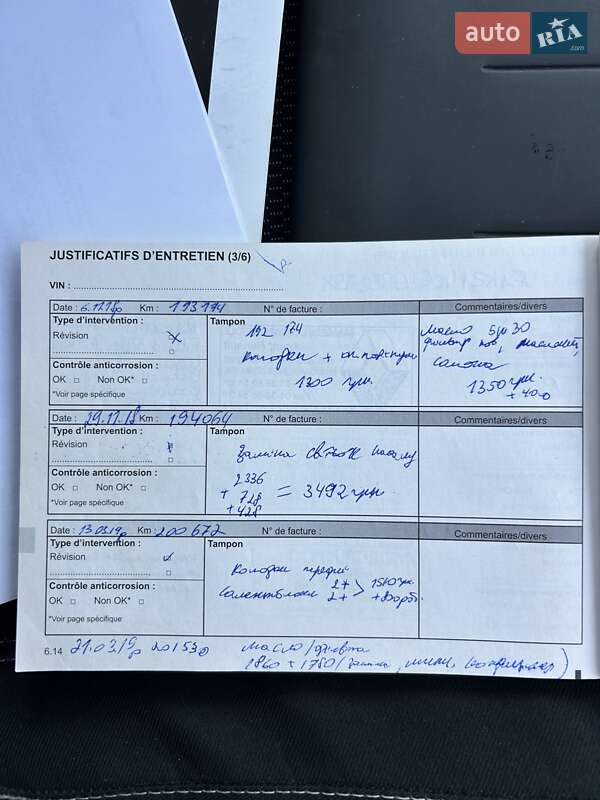 auto RIA.com
JUSTIFICATIFS D'ENTRETIEN (3/6)
VIN :
Date : 6.12.18р Km : 193 174 N° de facture : Commentaires/divers
Type d'intervention : Tampon
Révision
192 174
Колодки +
1300 грн.
Масло 5w30
фильтр пов,
салона
1350 грн.
+ 400
Contrôle anticorrosion :
OK □ Non OK* □
*Voir page spécifique
Date : 29.12.18 Km : 194064 N° de facture : Commentaires/divers
Type d'intervention : Tampon
Révision
Заміна свічок
2336
+ 728
+ 428
= 3492 грн.
Contrôle anticorrosion :
OK □ Non OK* □
*Voir page spécifique
Date : 13.03.19р Km : 200 672 N° de facture : Commentaires/divers
Type d'intervention : Tampon
Révision
Колодки передні
Салентблоки 2+ 2+ > 1510 грн.
Contrôle anticorrosion :
OK □ Non OK* □
*Voir page spécifique
6.14 21.03.19р 201530 масло/
1860 + 1750/